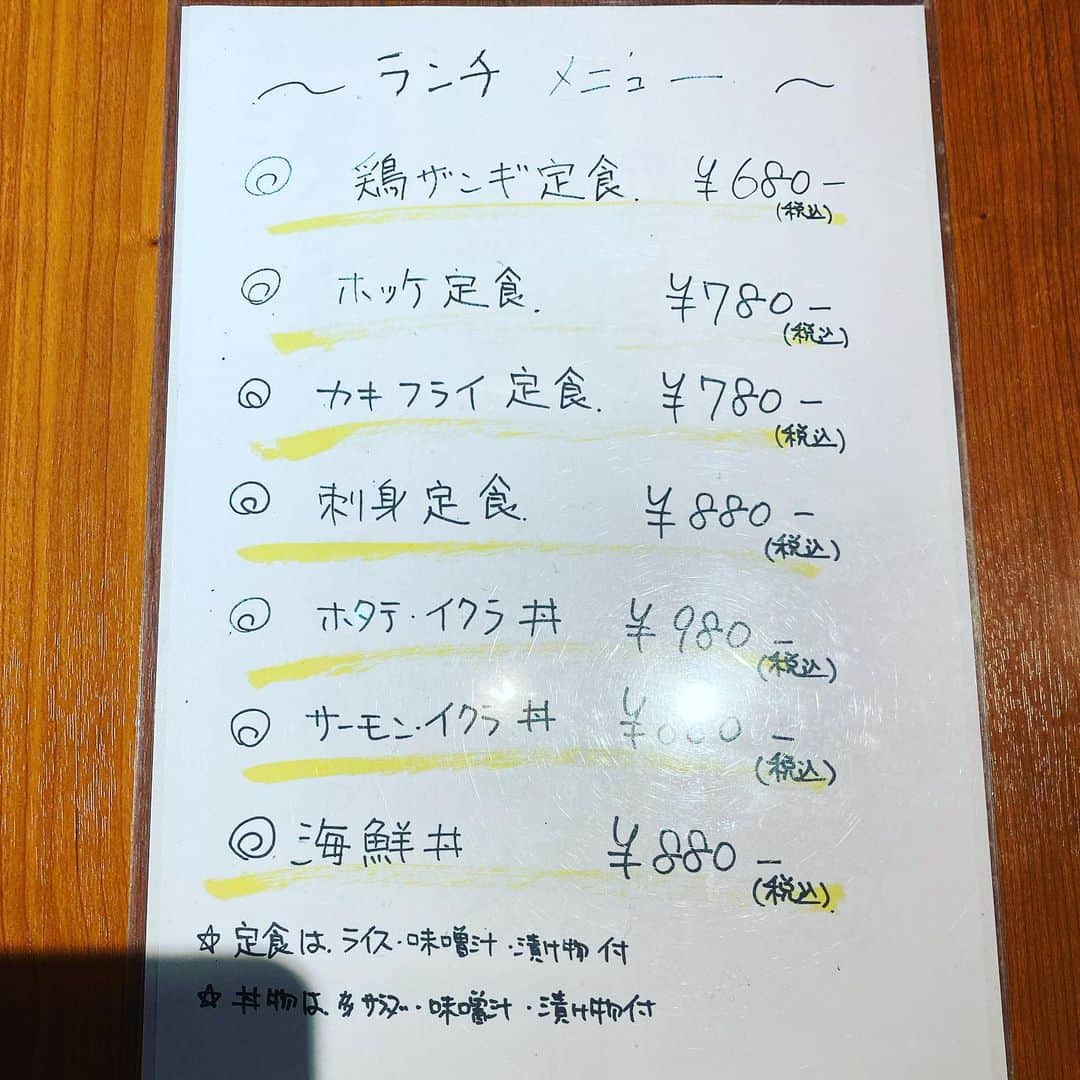 ～ ランチ メニュー ～
◎ 鶏ザンギ定食. ¥680-
(税込)
◎ ホッケ定食. ¥780-
(税込)
◎ カキフライ定食. ¥780-
(税込)
◎ 刺身定食. ¥880-
(税込)
◎ ホタテ・イクラ丼 ¥980-
(税込)
◎ サーモン・イクラ丼
(税込)
◎ 海鮮丼 ¥880-
(税込)
☆ 定食は、ライス・味噌汁・漬け物付
☆ 丼物は、サラダ・味噌汁・漬け物付